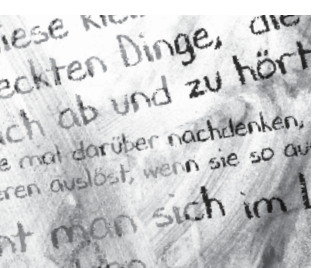 iese kle
eckten Dinge, die
ch ab und zu hört
e mal darüber nachdenken,
eren auslöst, wenn sie so au
nt man sich im L